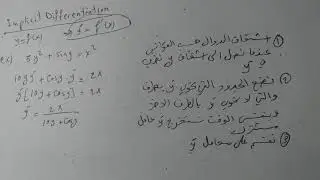 Implicit Differentiation
y = f(x) ⇒ y' = f'(x)
ex) 5y² + sin y = x²
10yy' + cos y · y' = 2x
y' [10y + cos y] = 2x
y' = 2x / (10y + cos y)
① اشتقاق الدوال حسب القوانين
عندما نصل الى اشتقاق y نكتب y'
② نضع الحدود التي تحوي y' بطرف
والتي لا تحوي y' بالطرف الاخر
وبنفس الوقت نستخرج y' عامل
مشترك
③ نقسم على معامل y'